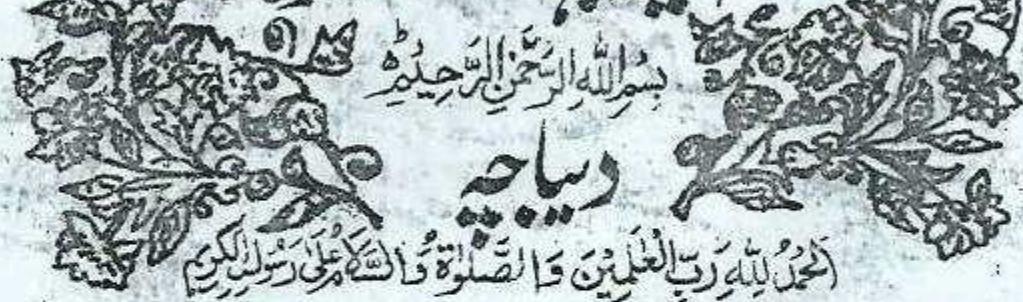 بِسْمِ اللّٰهِ الرَّحْمٰنِ الرَّحِيْمِ
دیباچہ
اَلْحَمْدُ لِلّٰهِ رَبِّ الْعٰلَمِيْنَ وَالصَّلٰوةُ وَالسَّلَامُ عَلٰى رَسُوْلِهِ الْكَرِيْمِ